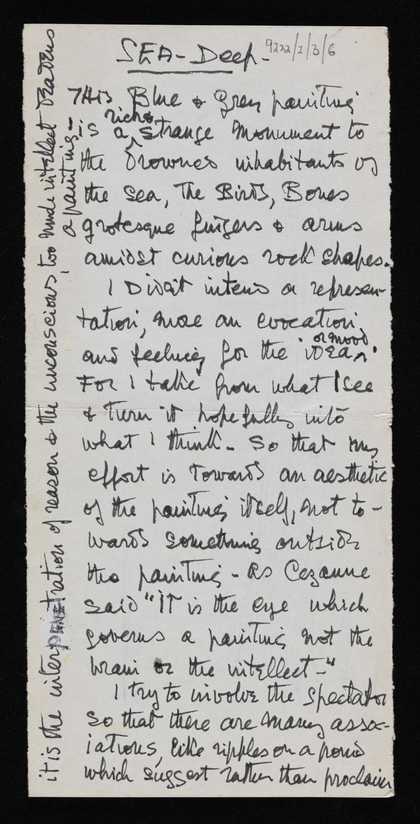 SEA-Deep-
9222/2/3/6
This Blue & Grey painting
is a rich & strange Monument to
the Drowned inhabitants of
the sea, The Birds, Bones
grotesque fingers & arms
amidst curious rock shapes.
I Didn't intend a represen-
tation, more an evocation
and feeling for the 'idea' or mood
For I take from what I see
& turn it hopefully into
what I think - So that my
effort is Towards an aesthetic
of the painting itself, not to-
wards something outside
the painting - As Cezanne
said "IT is the eye which
governs a painting not the
brain or the intellect-"
I try to involve the Spectator
So that there are many asso-
iations, like ripples on a pond
which suggest rather than proclaim
it is the interpenetration of reason & the unconscious, too much intellect
a painting-